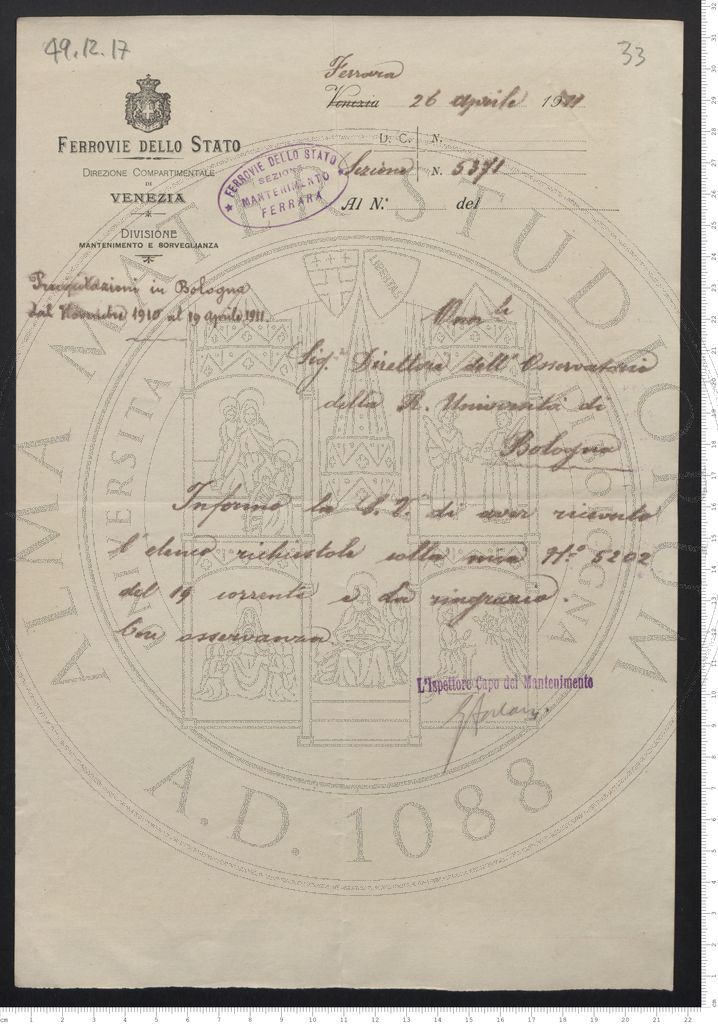 49.12.17
33
Ferrara
Venezia 26 aprile 1911
FERROVIE DELLO STATO
DIREZIONE COMPARTIMENTALE
DI
VENEZIA
DIVISIONE
MANTENIMENTO E SORVEGLIANZA
D. C. N.
Sezione N. 5371
Al N.° del
★ FERROVIE DELLO STATO ★
SEZIONE
MANTENIMENTO
FERRARA
Precipitazioni in Bologna
dal Novembre 1910 al 19 Aprile 1911.
Onor.le
Sig.r Direttore dell'Osservatorio
della R. Università di
Bologna
Informo la S. V. di aver ricevuto
l'elenco richiestole colla mia N.° 5202
del 19 corrente e La ringrazio.
Con osservanza
L'Ispettore Capo del Mantenimento
ALMA MATER STUDIORUM
UNIVERSITA BOLOGNA
LIBERTAS
A.D. 1088